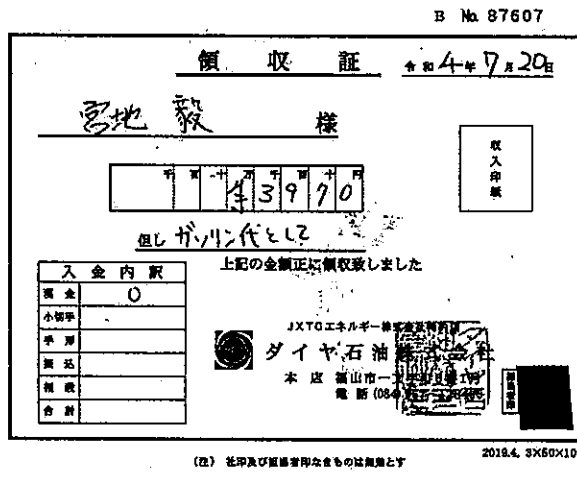 B № 87607
領 収 証
令和4年7月20日
宮地 毅 様
千 百 十 万 千 百 十 円
¥3970
収入印紙
但し ガソリン代として
上記の金額正に領収致しました
入金内訳
現金 0
小切手
手形
振込
相殺
合計
JXTGエネルギー株式会社特約店
ダイヤ石油株式会社
本店 福山市一
電話(084)
(注) 社印及び担当者印なきものは無効とす
2019.4. 3×50×10